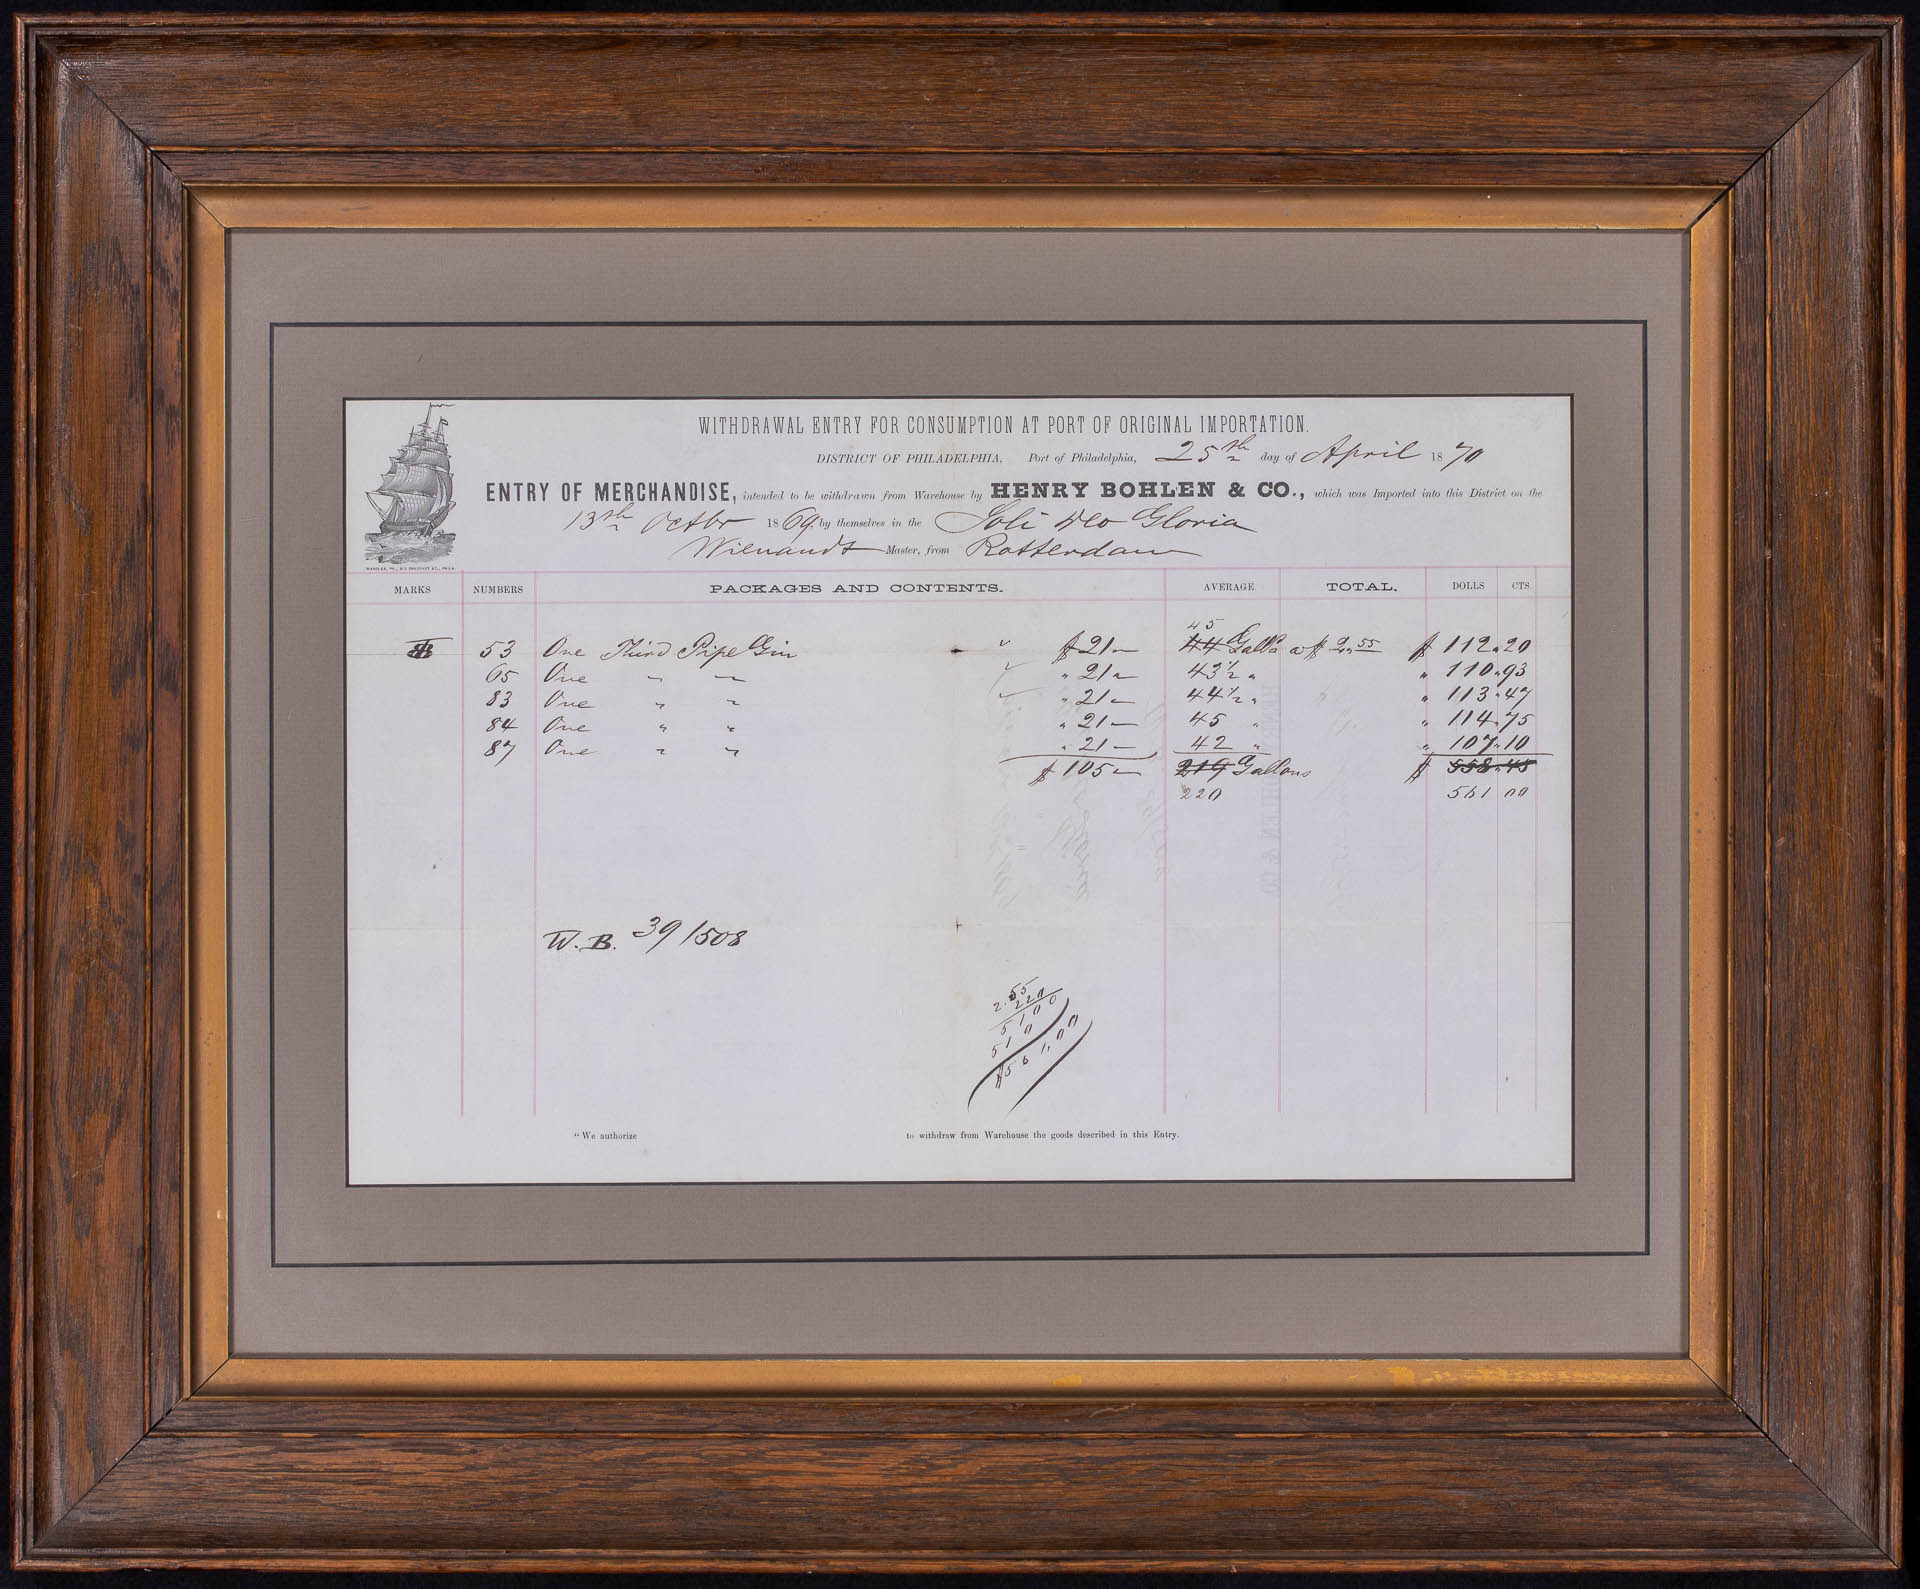 WITHDRAWAL ENTRY FOR CONSUMPTION AT PORT OF ORIGINAL IMPORTATION.
DISTRICT OF PHILADELPHIA, Port of Philadelphia, 25th day of April 1870
ENTRY OF MERCHANDISE, intended to be withdrawn from Warehouse by HENRY BOHLEN & CO., which was Imported into this District on the
13th Octbr 1869 by themselves in the Soli Deo Gloria
Wienands Master, from Rotterdam
MARKS NUMBERS PACKAGES AND CONTENTS. AVERAGE. TOTAL. DOLLS CTS.
45
53 One Third Pipe Gin $ 21 44 Galls a $ 2.55 $ 112.20
65 One " " " 21 43 1/2 " " 110.93
83 One " " " 21 44 1/2 " " 113.47
84 One " " " 21 45 " " 114.75
87 One " " " 21 42 " " 107.10
$ 105 219 Gallons $ 558.45
220 561 00
W. B. 39/508
2.55
220
5100
510
$561.00
"We authorize to withdraw from Warehouse the goods described in this Entry.